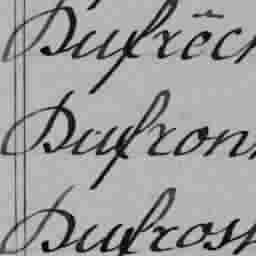 Dufrēch
Dufron
Dufross